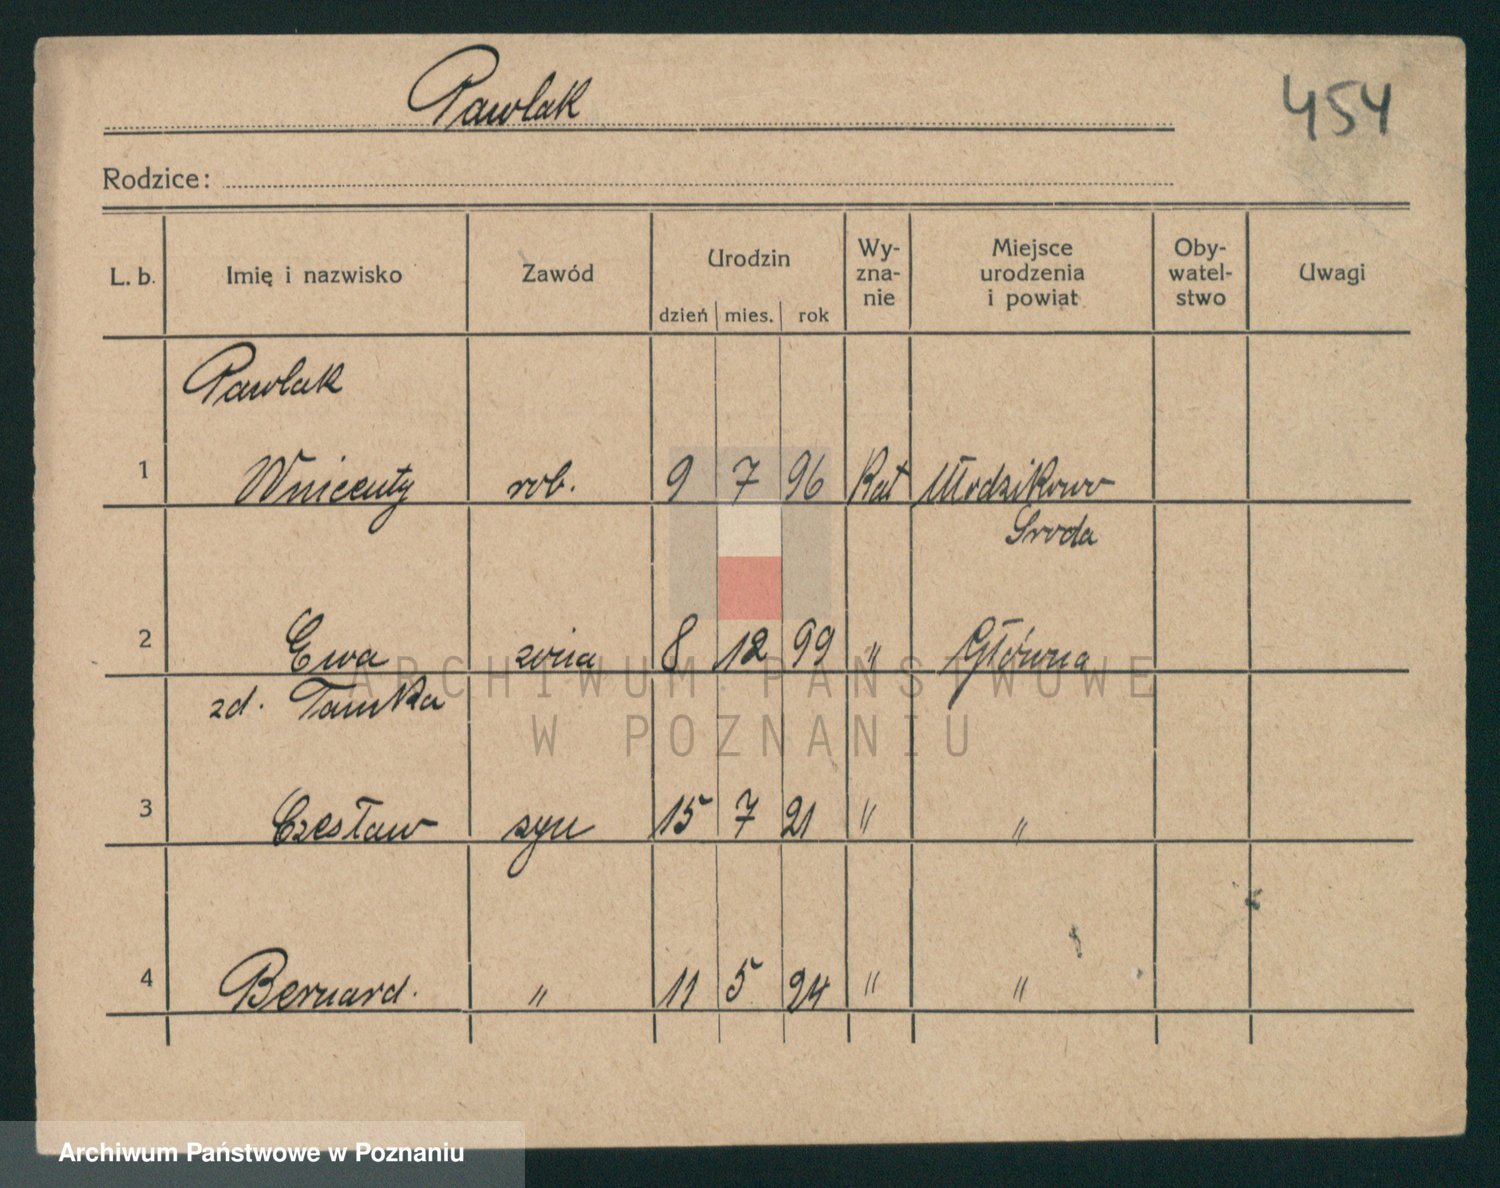 Pawlak
454
Rodzice:
L. b. Imię i nazwisko Zawód Urodzin dzień mies. rok Wy-zna-nie Miejsce urodzenia i powiat Oby-watel-stwo Uwagi
Pawlak
1 Wincenty rob. 9 7 96 Kat Włodzikowo
Sroda
2 Ewa żona 8 12 99 " Główna
zd. Tamka
3 Czesław syn 15 7 21 " "
4 Bernard. " 11 5 24 " "
ARCHIWUM PAŃSTWOWE
W POZNANIU
Archiwum Państwowe w Poznaniu